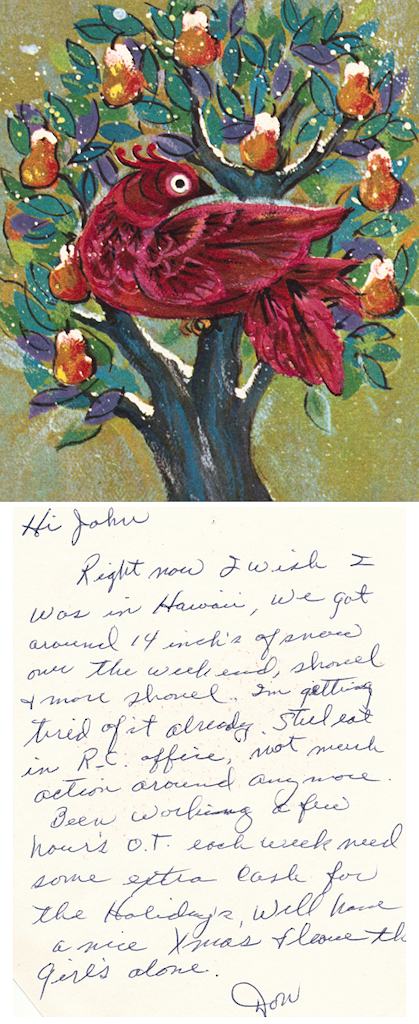 Hi John
Right now I wish I
was in Hawaii, we got
around 14 inch's of snow
over the weekend, shovel
& more shovel. I'm getting
tired of it already. Still at
in R.C. office, not much
action around anymore.
Been working a few
hour's O.T. each week need
some extra cash for
the Holiday's, Will have
a nice Xmas & leave th
girl's alone.
Don